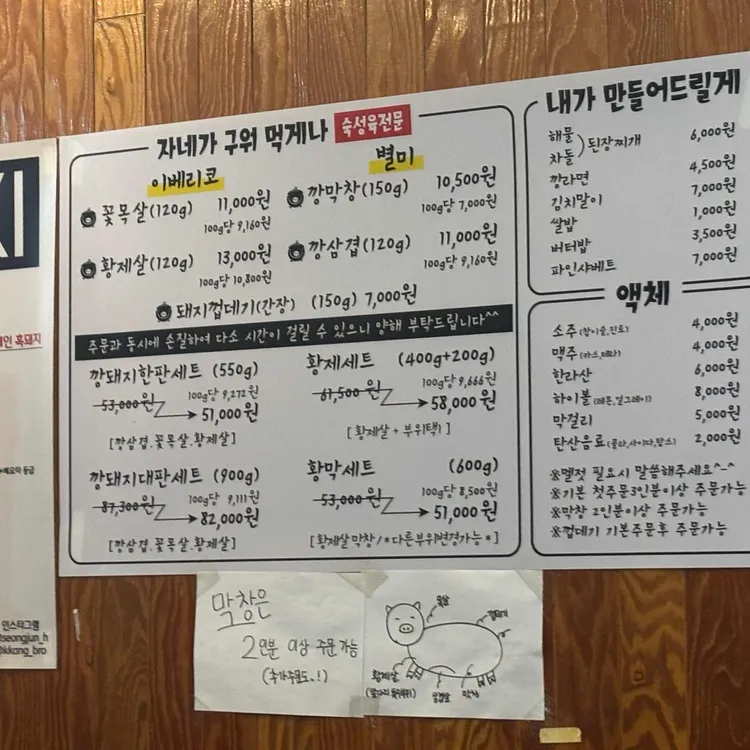 자네가 구워 먹게나 숙성육전문
이베리코
꽃목살(120g) 11,000원
100g당 9,160원
황제살(120g) 13,000원
100g당 10,800원
별미
깡막창(150g) 10,500원
100g당 7,000원
깡삼겹(120g) 11,000원
100g당 9,160원
돼지껍데기(간장) (150g) 7,000원
주문과 동시에 손질하여 다소 시간이 걸릴 수 있으니 양해 부탁드립니다^^
깡돼지한판세트 (550g)
100g당 9,272원
53,000원 51,000원
[깡삼겹.꽃목살.황제살]
황제세트 (400g+200g)
100g당 9,666원
61,500원 58,000원
[황제살 + 부위택1]
깡돼지대판세트 (900g)
100g당 9,111원
87,300원 82,000원
[깡삼겹.꽃목살.황제살]
황막세트 (600g)
100g당 8,500원
53,000원 51,000원
[황제살 막창/*다른부위변경가능*]
내가 만들어드릴게
해물
차돌 ) 된장찌개 6,000원
깡라면 4,500원
김치말이 7,000원
쌀밥 1,000원
버터밥 3,500원
파인샤베트 7,000원
액체
소주(참이슬,진로) 4,000원
맥주(카스,테라) 4,000원
한라산 6,000원
하이볼(레몬,얼그레이) 8,000원
막걸리 5,000원
탄산음료(콜라,사이다,탐스) 2,000원
※멜젓 필요시 말씀해주세요^-^
※기본 첫주문3인분이상 주문가능
※막창 2인분이상 주문가능
※껍데기 기본주문후 주문가능
XI
흑돼지
인스타그램
seongjun_h
kkang_bro
막창은
2인분 이상 주문 가능
(추가주문도..!)
목살
껍데기
황제살
삼겹살
막창